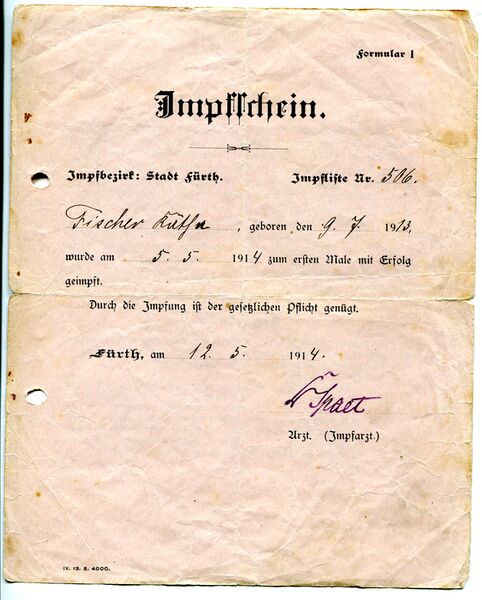 Formular I
Impfschein.
Impfbezirk: Stadt Fürth. Impfliste Nr. 506.
Fischer Käthe, geboren den 9. 7. 1913,
wurde am 5. 5. 1914 zum ersten Male mit Erfolg
geimpft.
Durch die Impfung ist der gesetzlichen Pflicht genügt.
Fürth, am 12. 5. 1914.
Arzt. (Impfarzt.)
IV. 13. S. 4000.